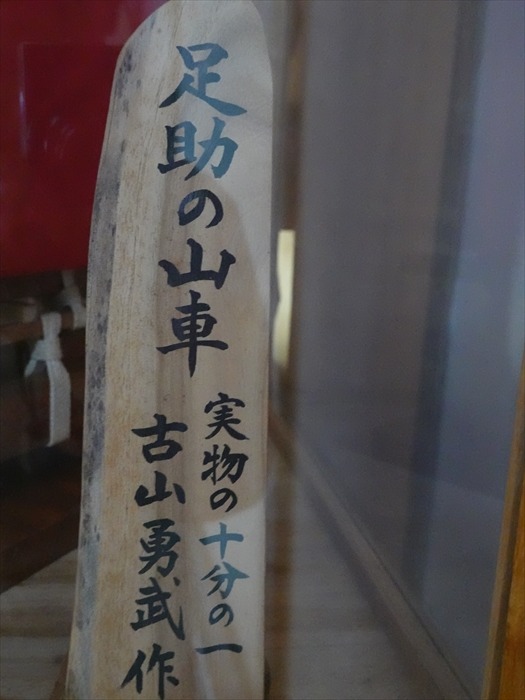 足助の山車
実物の十分の一
古山勇武作